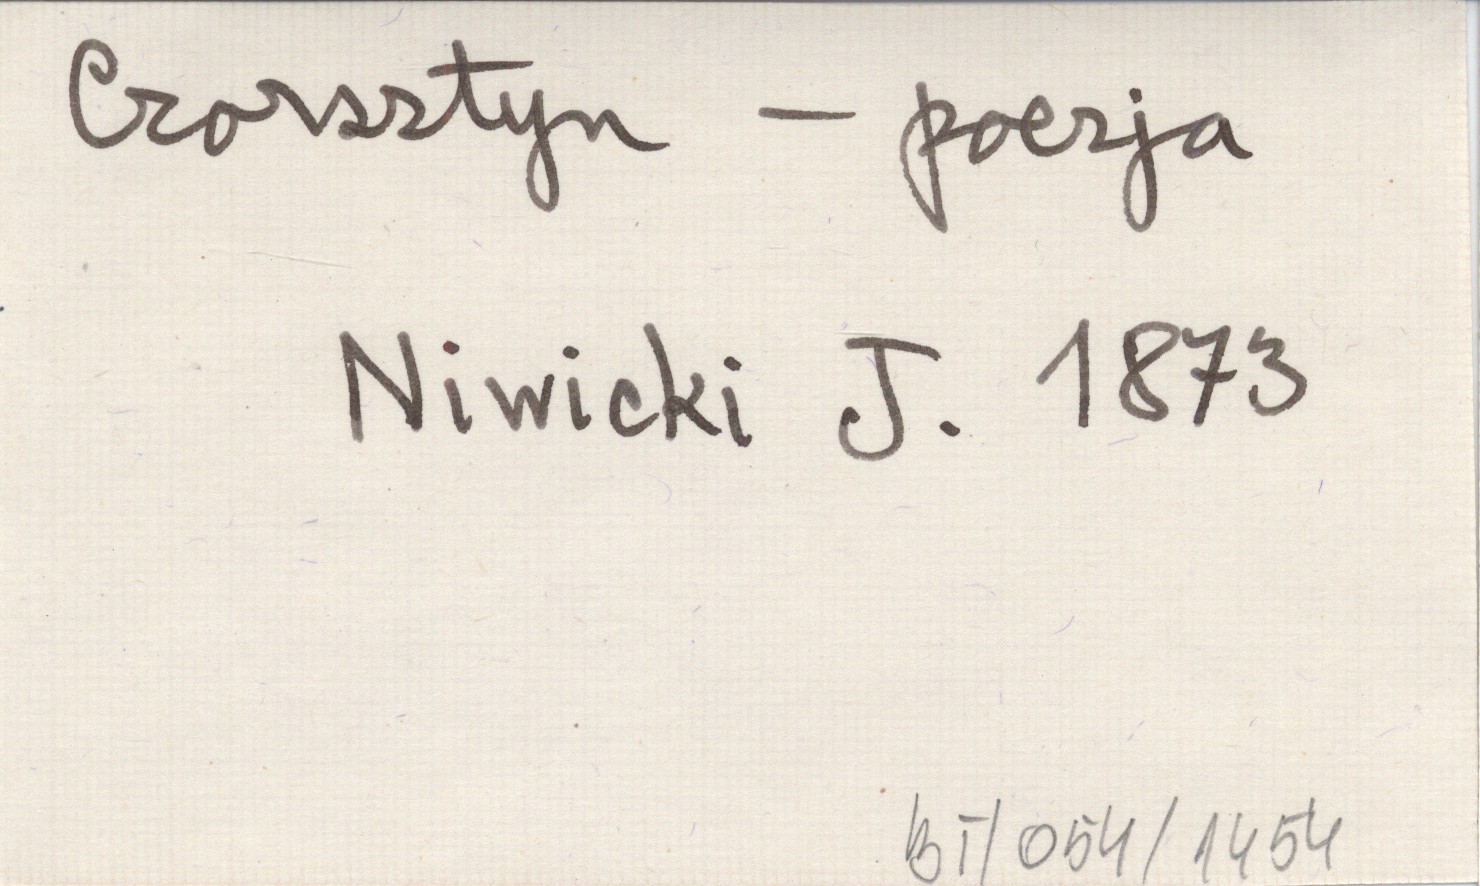 Czorsztyn – poezja
Niwicki J. 1873
BI/054/1454